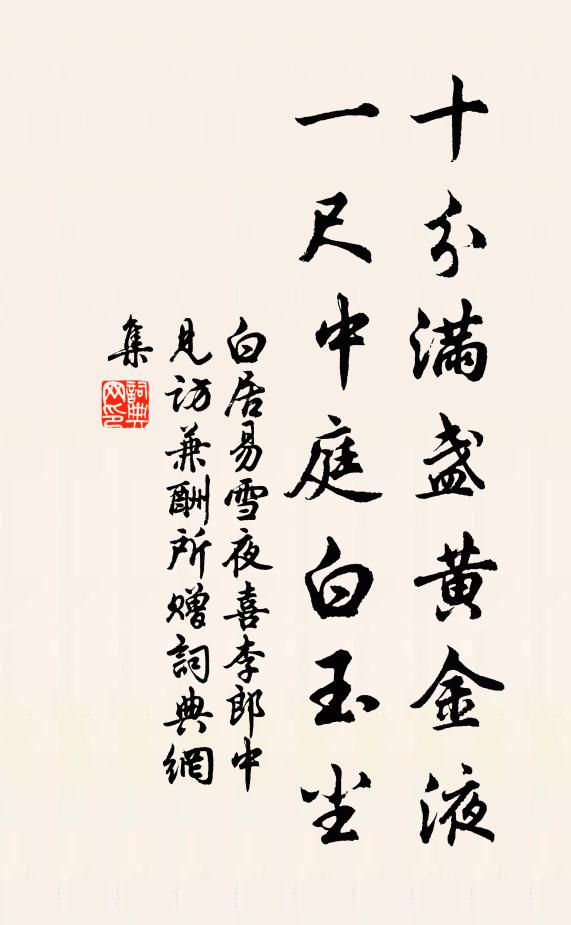 十分满盏黄金液
一尺中庭白玉尘
白居易雪夜喜李郎中
見訪兼酬所贈詞典網
集
詞典網印